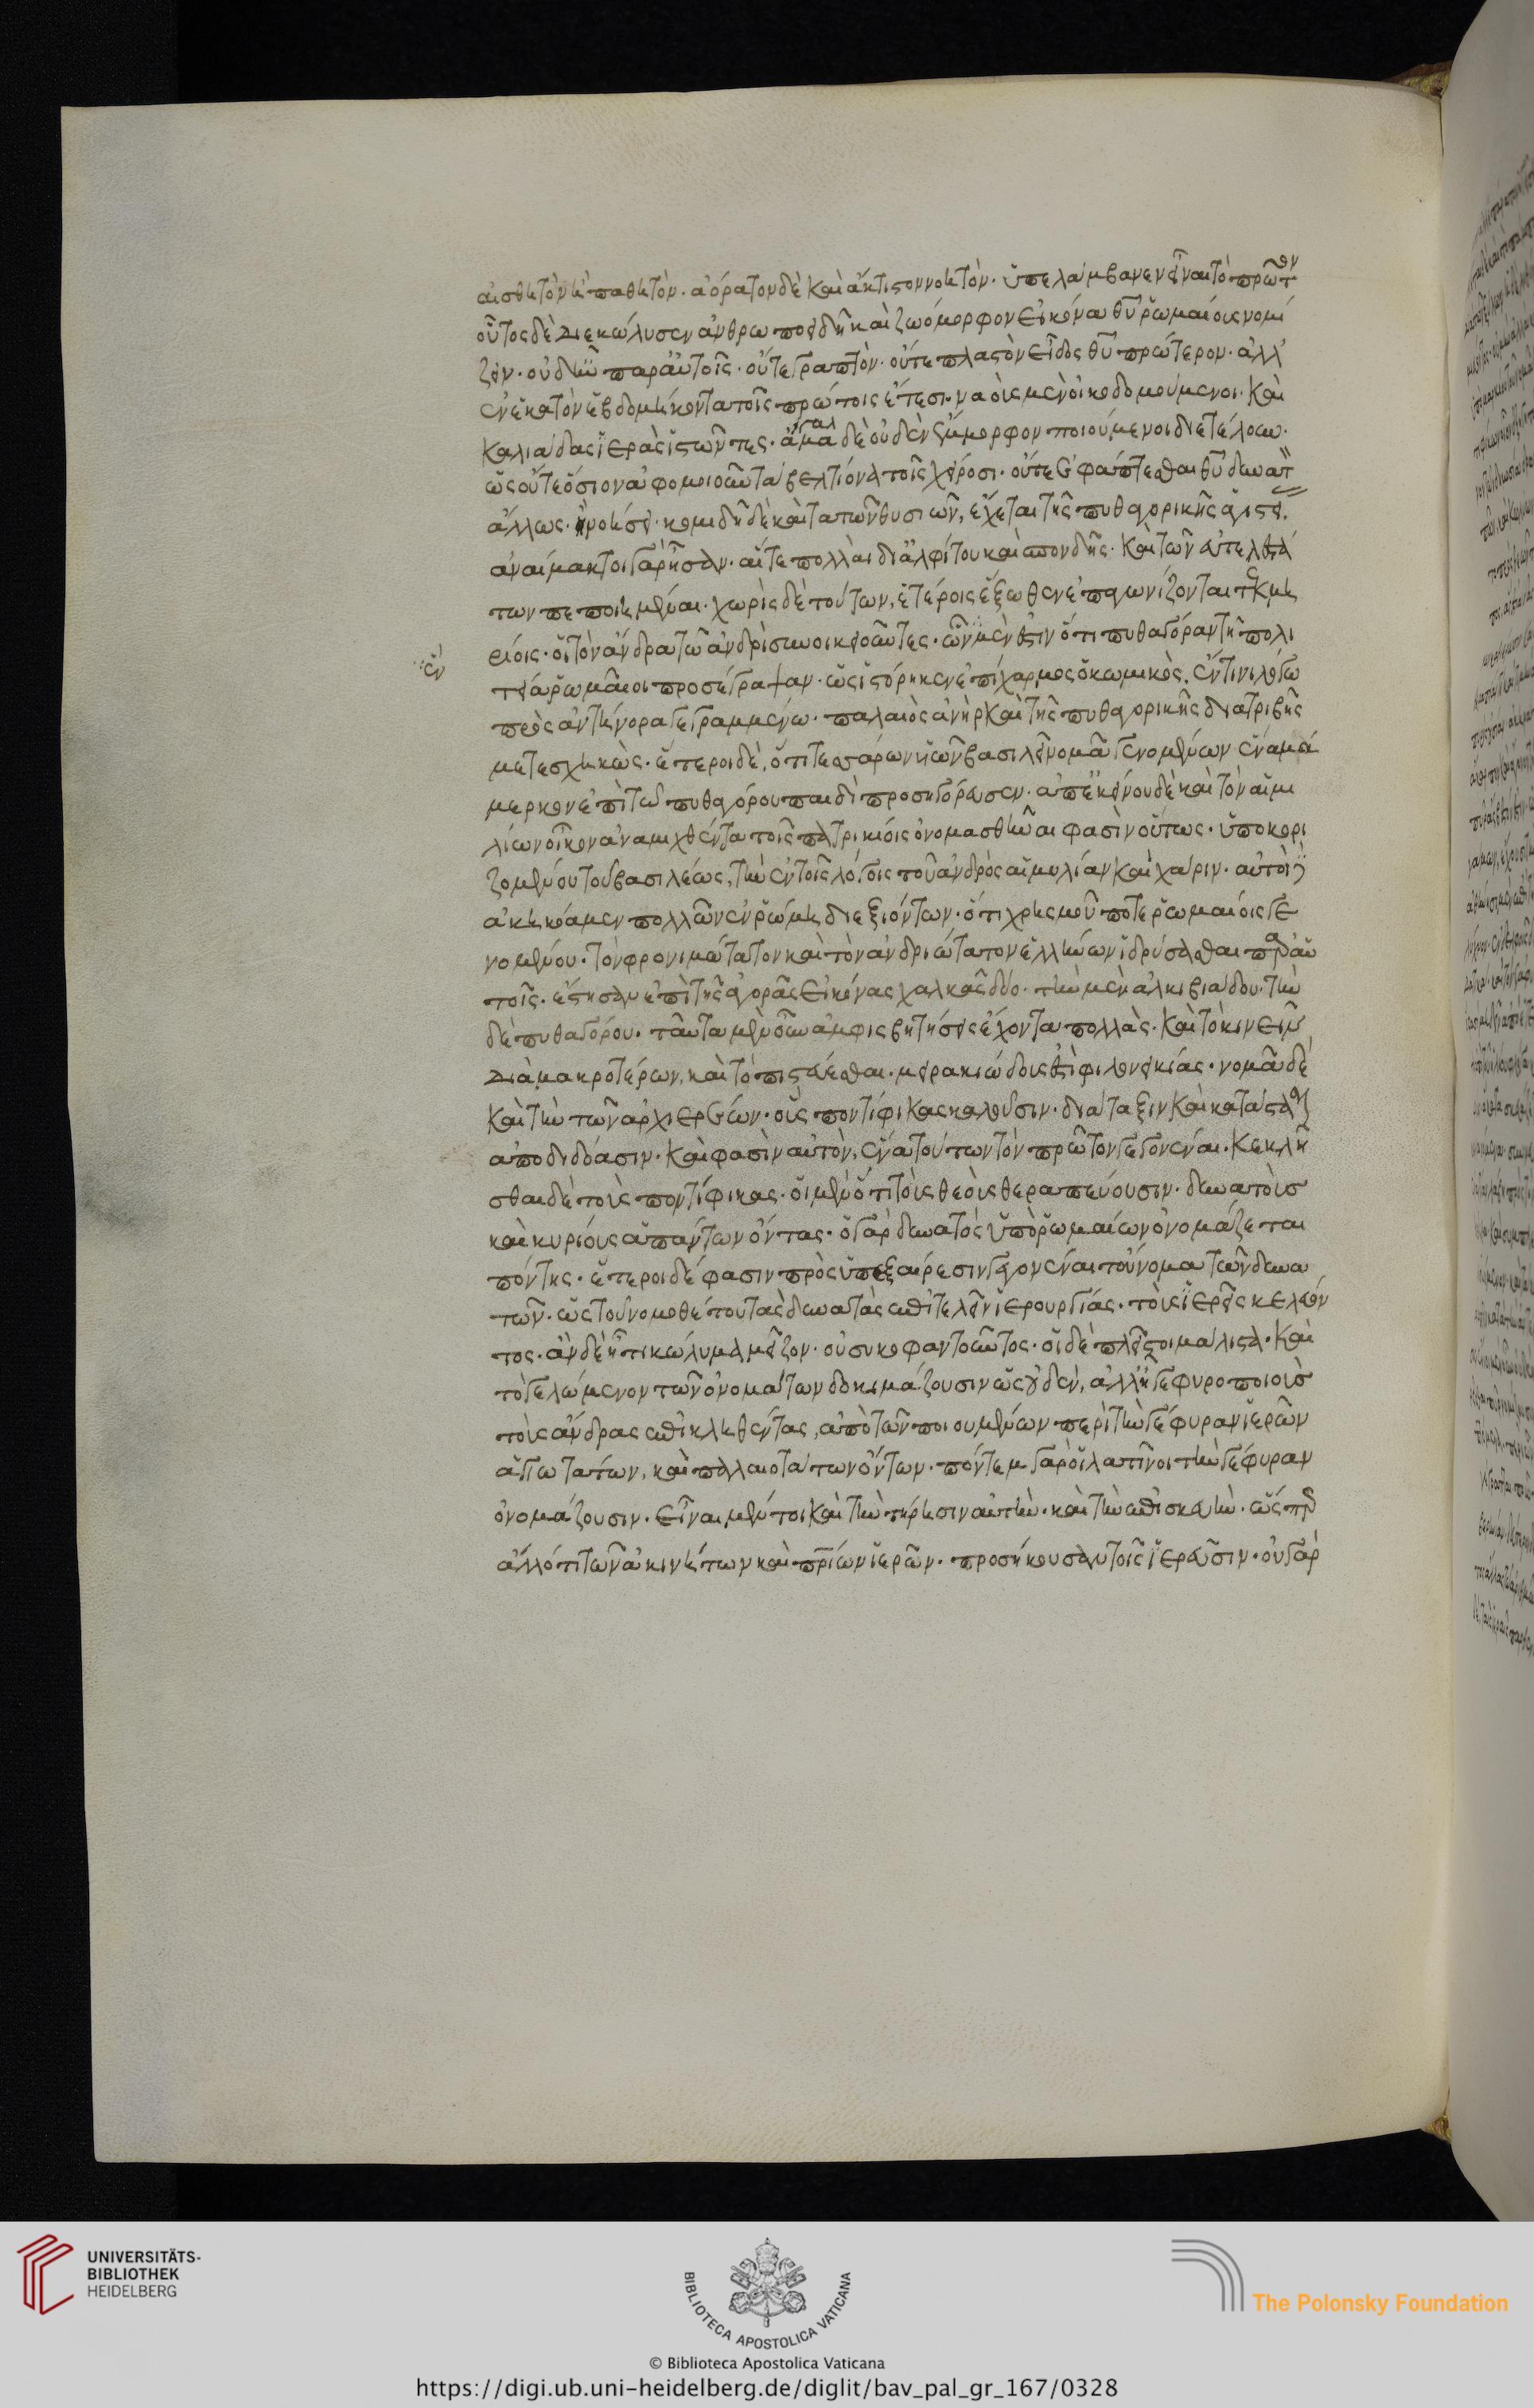 αἰσθητὸν ἢ παθητὸν. ἀόρατον δὲ καὶ ἄκτιστον νοητὸν. ὑπελάμβανεν εἶναι τὸ πρῶτον
οὗτος δὲ διεκώλυσεν ἀνθρωποειδῆ καὶ ζωόμορφον εἰκόνα θυ ῥωμαίοις νομί
ζειν. οὐδ' ἦν παρ' αὐτοῖς. οὔτε γραπτὸν. οὔτε πλαστὸν εἶδος θυ πρότερον. ἀλλ'
ἐν ἑκατὸν ἑβδομήκοντα τοῖς πρώτοις ἔτεσι. ναοὺς μὲν οἰκοδομούμενοι. καὶ
καλιάδας ἱερὰς ἱστῶντες. ἄγαλμα δὲ οὐδὲν ἔμμορφον ποιούμενοι διετέλουν.
ὡς οὔτε ὅσιον ἀφομοιοῦν τὰ βελτίονα τοῖς χείροσι. οὔτε ἐφάπτεσθαι θυ δυνατ
ἄλλως. ἢ νοήσει. κομιδῆ δὲ καὶ τὰ τῶν θυσιῶν, ἔχεται τῆς πυθαγορικῆς ἁγιστεί.
ἀναίμακτοι γὰρ ἦσαν. αἵτε πολλαὶ δι' ἀλφίτου καὶ σπονδῆς. καὶ τῶν εὐτελεστά
των πεποιημέναι. χωρὶς δὲ τούτων, ἑτέροις ἔξωθεν ἐπαγωνίζονται τεκμη
ρίοις. οἱ τὸν ἄνδρα τῷ ἀνδρὶ συνοικειοῦντες. ὧν ἓν μὲν ἐστὶν ὅτι πυθαγόραν τῇ πολι
ἐν
τείᾳ ῥωμαῖοι προσέγραψαν. ὡς ἱστόρηκεν ἐπίχαρμος ὁ κωμικὸς, ἔν τινι λόγω
πρὸς ἀντήνορα γεγραμμένω. παλαιὸς ἀνὴρ καὶ τῆς πυθαγορικῆς διατριβῆς
μετεσχηκὼς. ἕτεροι δὲ, ὅτι τεσσάρων υἱῶν βασιλεῖ νομᾷ γενομένων ἕνα μά
μερκον ἐπὶ τῷ πυθαγόρου παιδὶ προσηγόρευσεν. ἀπ' ἐκείνου δὲ καὶ τὸν αἰμι
λίων οἶκον ἀναμιχθέντα τοῖς πατρικίοις ὀνομασθῆναι φασὶν οὕτως. ὑποκορι
ζομένου τοῦ βασιλέως, τὴν ἐν τοῖς λόγοις τοῦ ἀνδρὸς αἱμυλίαν καὶ χάριν. αὐτοὶ δ'
ἀκηκόαμεν πολλῶν ἐν ῥώμη διεξιόντων. ὅτι χρησμοῦ ποτε ῥωμαίοις γε
νομένου. τὸν φρονιμώτατον καὶ τὸν ἀνδριώτατον ἑλλήνων ἱδρύσασθαι παρ' αὐ
τοῖς. ἔστησαν ἐπὶ τῆς ἀγορᾶς εἰκόνας χαλκᾶς δύο. τὴν μὲν ἀλκιβιάδου. τὴν
δὲ πυθαγόρου. ταῦτα μὲν οὖν ἀμφισβητήσεις ἔχοντα πολλὰς. καὶ τὸ κινεῖν
διὰ μακροτέρων, καὶ τὸ πιστεύεσθαι. μειρακιώδους ἐστὶ φιλονεικίας. νομᾷ δὲ
καὶ τὴν τῶν ἀρχιερέων. οὓς ποντίφικας καλοῦσιν. διάταξιν καὶ κατάστασιν
ἀποδιδόασιν. καὶ φασὶν αὐτὸν, ἕνα τούτων τὸν πρῶτον γεγονέναι. κεκλῆ
σθαι δὲ τοὺς ποντίφικας. οἱ μὲν ὅτι τοὺς θεοὺς θεραπεύουσιν. δυνατοὺς
καὶ κυρίους ἁπάντων ὄντας. ὁ γὰρ δυνατὸς ὑπὸ ῥωμαίων ὀνομάζεται
πόντης. ἕτεροι δέ φασιν πρὸς ὑπεξαίρεσιν γεγονέναι τοὔνομα τῶν δυνα
τῶν. ὡς τοῦ νομοθέτου τὰς δυνατὰς ἐπιτελεῖν ἱερουργίας. τοὺς ἱερεῖς κελεύον
τος. ἂν δὲ ᾖ τι κώλυμα μεῖζον. οὐ συκοφαντοῦντος. οἱ δὲ πλεῖστοι μάλιστα. καὶ
τὸ γελώμενον τῶν ὀνομάτων δοκιμάζουσιν ὡς οὐδὲν, ἀλλ' ἢ γεφυροποιοὺς
τοὺς ἄνδρας ἐπικληθέντας, ἀπὸ τῶν ποιουμένων περὶ τὴν γέφυραν ἱερῶν
ἁγιωτάτων, καὶ παλαιοτάτων ὄντων. πόντεμ γὰρ οἱ λατῖνοι τὴν γέφυραν
ὀνομάζουσιν. εἶναι μέντοι καὶ τὴν τήρησιν αὐτὴν. καὶ τὴν ἐπισκευὴν. ὥσπερ
ἄλλό τι τῶν ἀκινήτων καὶ πατρίων ἱερῶν. προσήκουσαν τοῖς ἱερεῦσιν. οὐ γὰρ
UNIVERSITÄTS-
BIBLIOTHEK
HEIDELBERG
BIBLIOTECA APOSTOLICA VATICANA
The Polonsky Foundation
© Biblioteca Apostolica Vaticana
https://digi.ub.uni-heidelberg.de/diglit/bav_pal_gr_167/0328